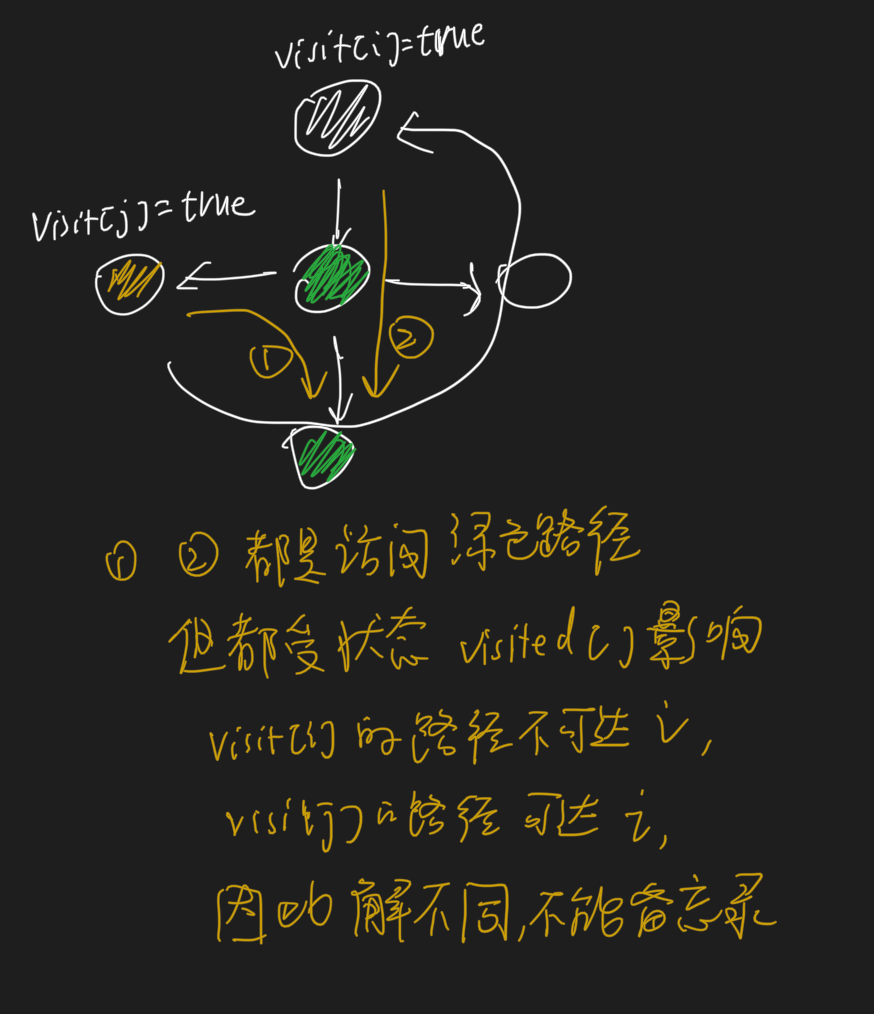 visit[i]=true
visit[j]=true
①
②
① ② 都是访问绿色路径
但都受状态 visited[] 影响
visit[i] 的路径不可达 i,
visit[j] 的路径可达 i,
因此解不同,不能备忘录